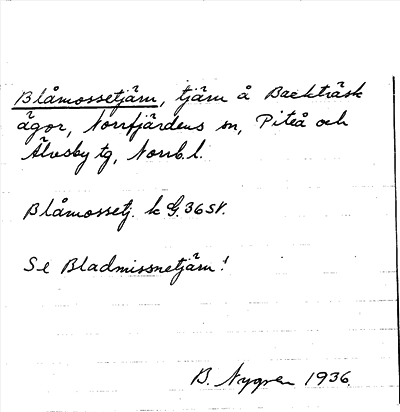 Blåmossetjärn, tjärn å Backträsk
ägor, Norrfjärdens sn, Piteå och
Älvsby tg, Norrb. l.
Blåmossetj. k G. 36 SV.
Se Bladmissnetjärn!
B. Nygren 1936.